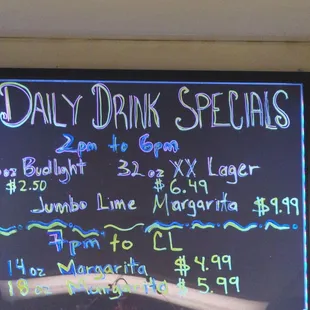 DAILY DRINK SPECIALS
2pm to 6pm
oz Budlight 32oz XX Lager
$2.50 $6.49
Jumbo Lime Margarita $9.99
7pm to CL
14oz Margarita $4.99
18oz Margarita $5.99